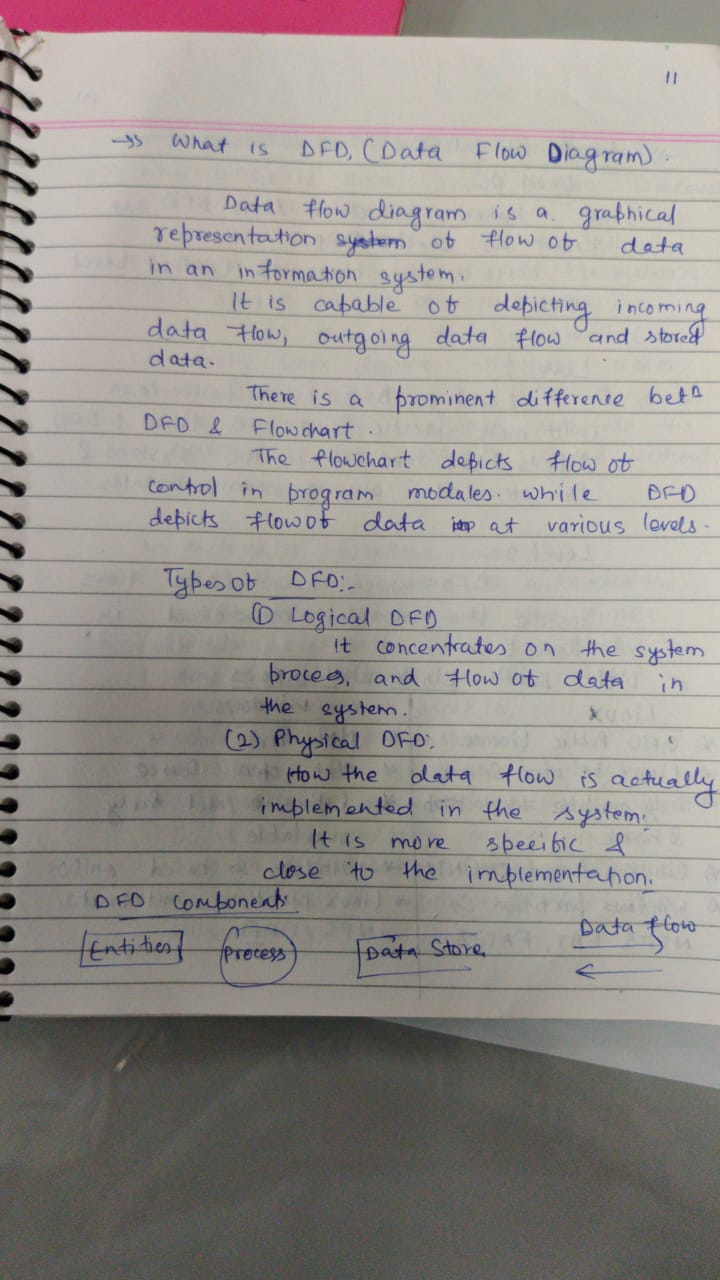 11
→ What is DFD, (Data Flow Diagram).
Data flow diagram is a graphical
representation system of flow of data
in an information system.
It is capable of depicting incoming
data flow, outgoing data flow and stored
data.
There is a prominent difference betn
DFD & Flowchart.
The flowchart depicts flow of
control in program modales. while DFD
depicts flow of data at various levels.
Types of DFD:-
① Logical DFD
it concentrates on the system
process, and flow of data in
the system.
(2) Physical DFD:
How the data flow is actually
implemented in the system.
It is more specific &
close to the implementation.
DFD components
Entities Process Data Store Data flow